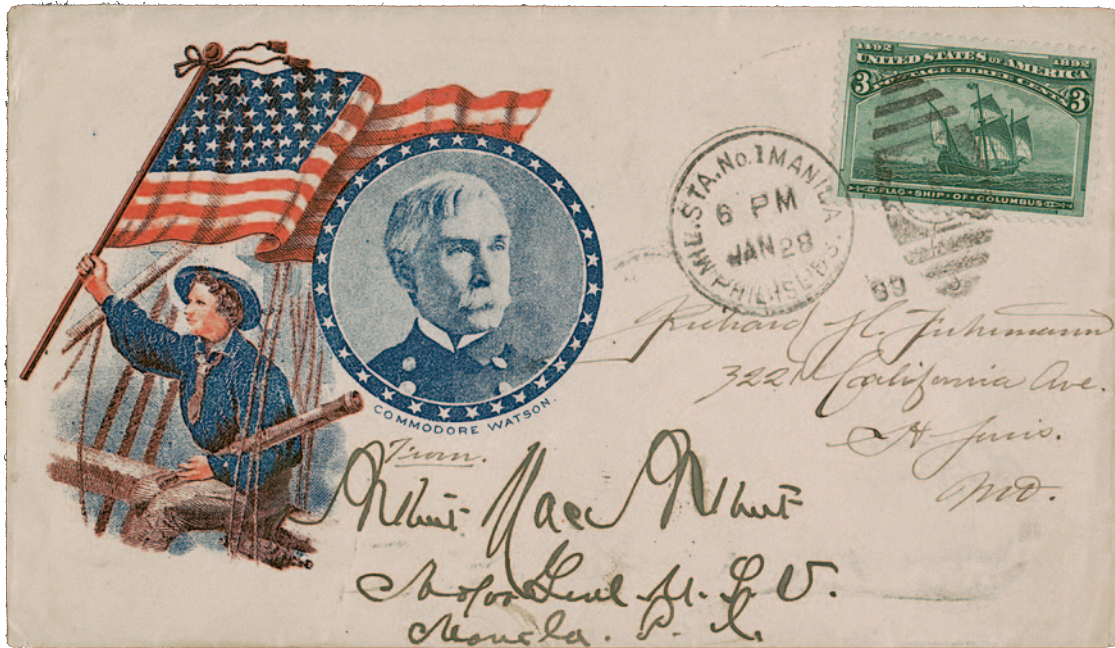 1492 1892
UNITED STATES OF AMERICA
POSTAGE THREE CENTS
3 3
FLAG · SHIP · OF · COLUMBUS
MIL. STA. No. 1 MANILA
6 PM
JAN 28
99
PHIL. ISLDS.
COMMODORE WATSON.
Richard H. Fuhrmann
3221 California Ave.
St Louis.
Mo.
From.
Albert Mac Albert
Major Genl U. S. V.
Manila. P. I.